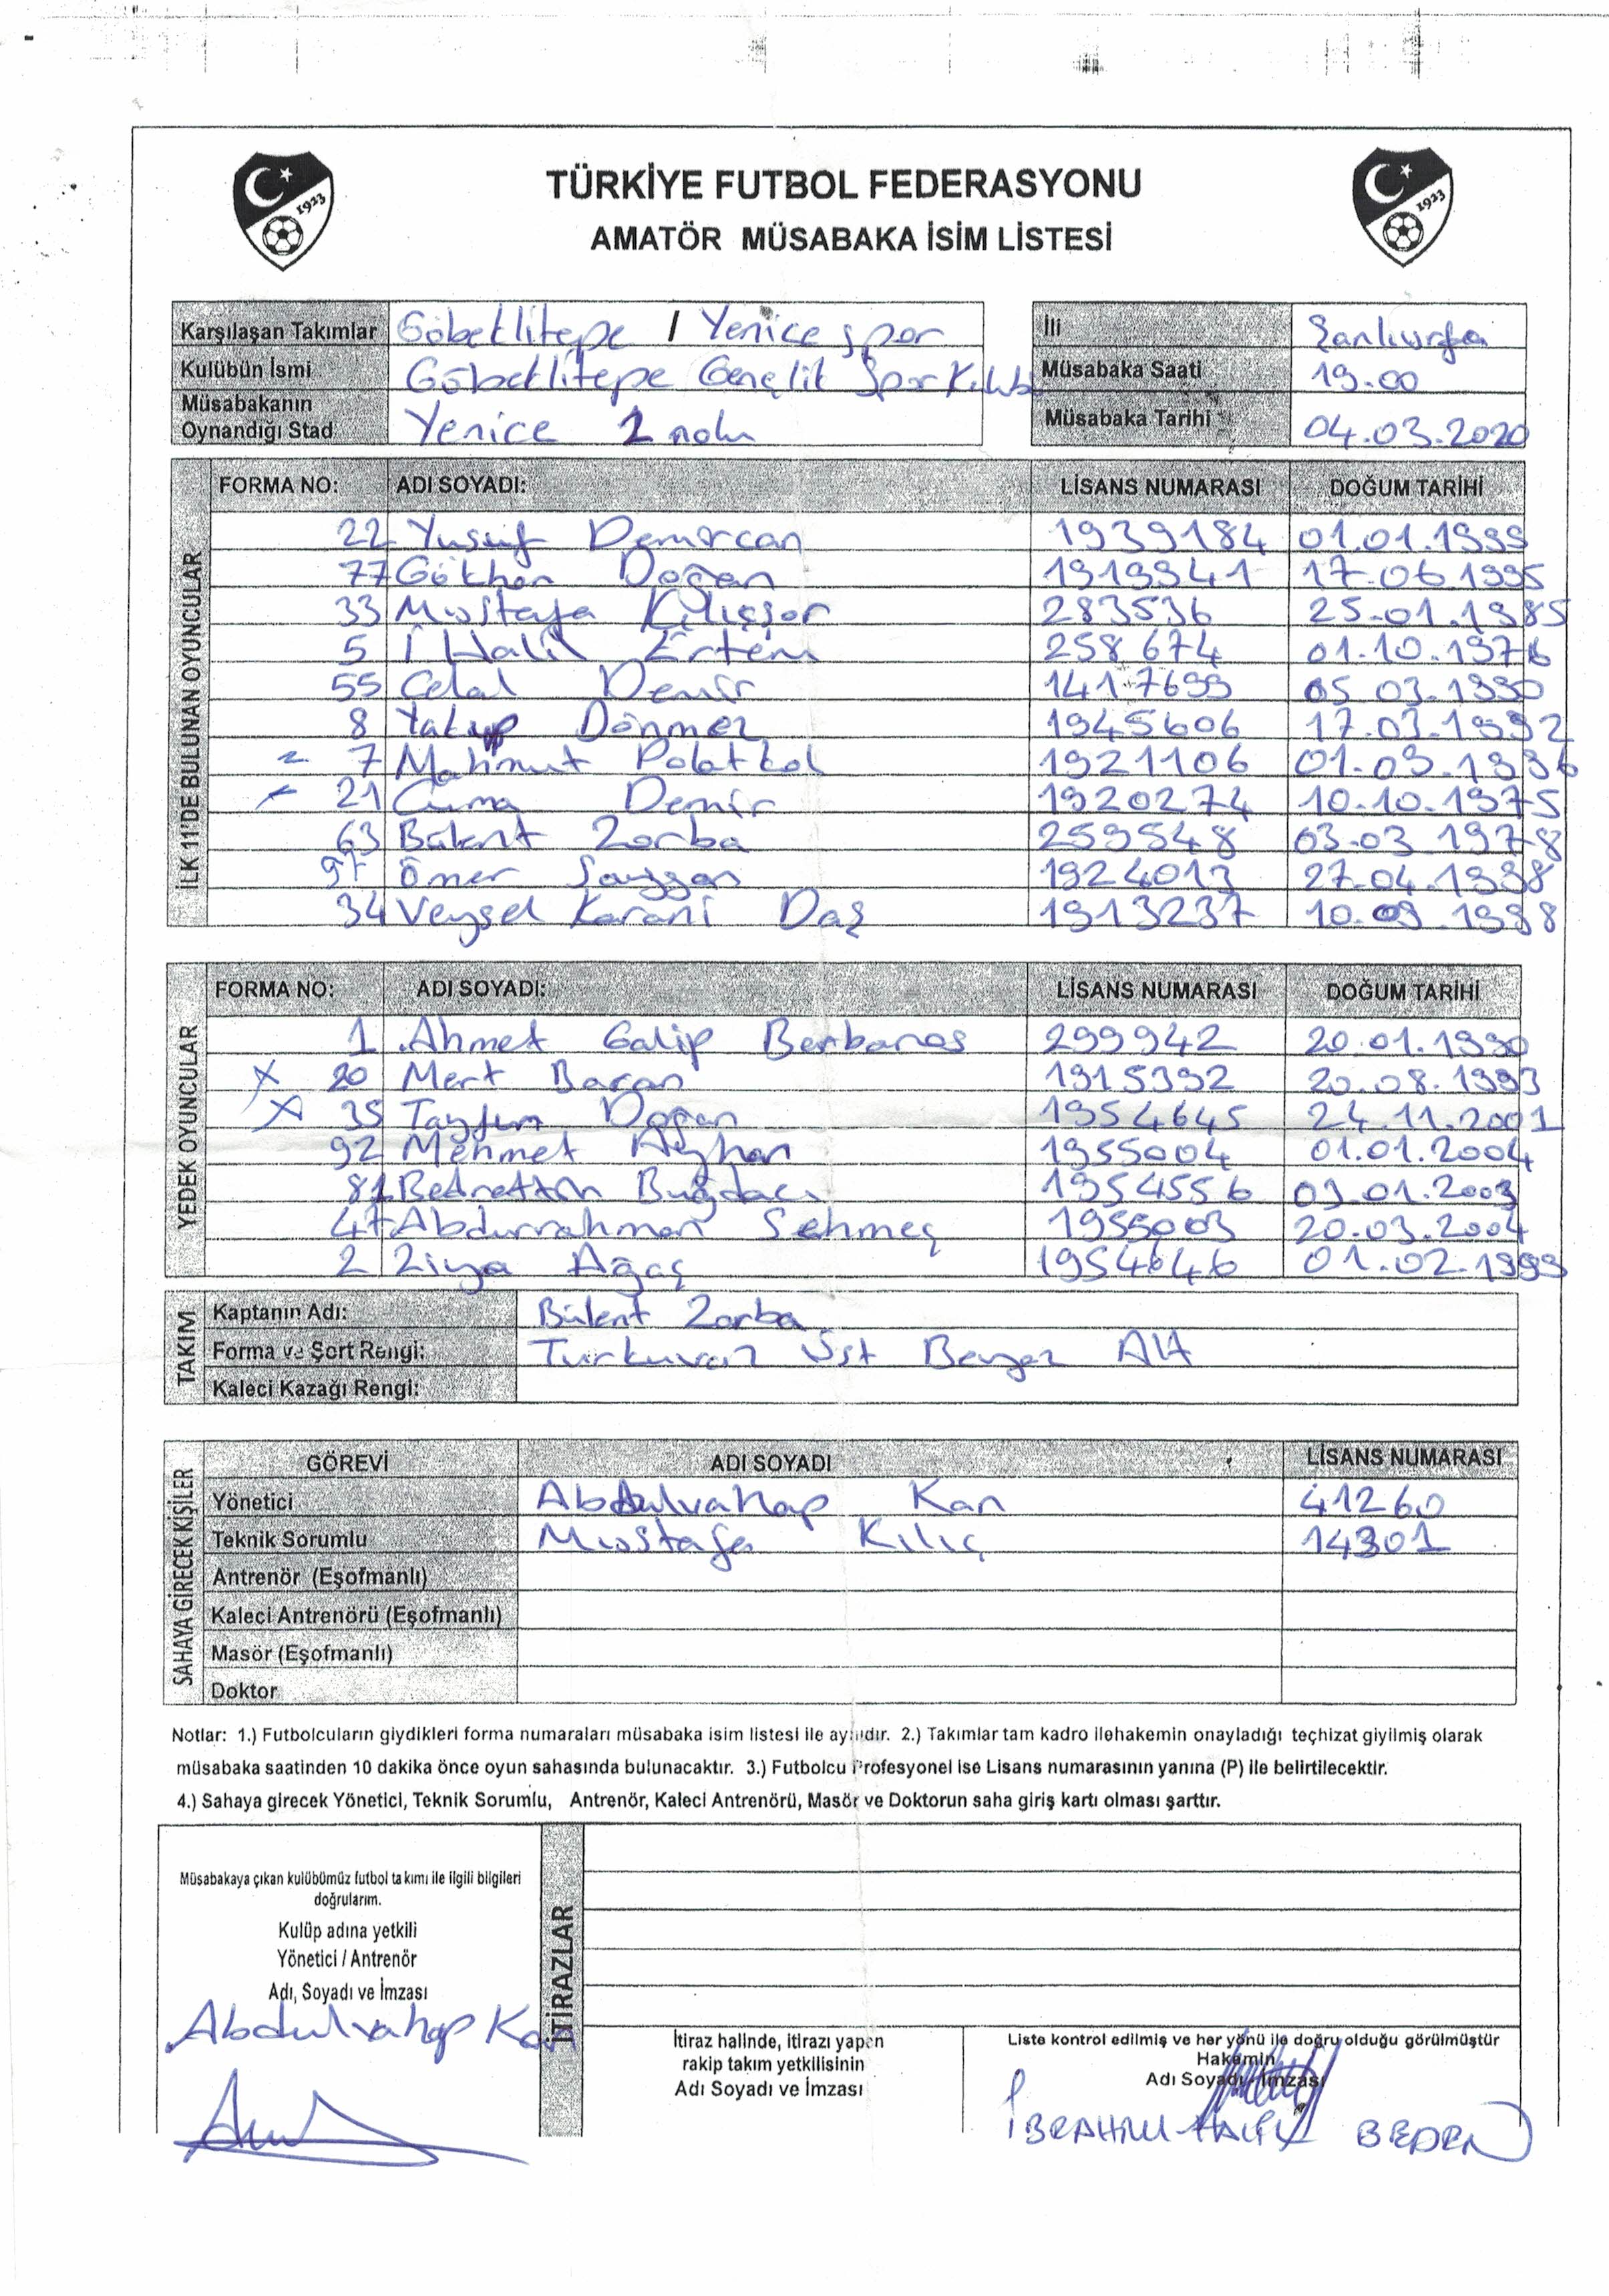 1923
1923
TÜRKİYE FUTBOL FEDERASYONU
AMATÖR MÜSABAKA İSİM LİSTESİ
Karşılaşan Takımlar Göbeklitepe / Yenice spor
Kulübün İsmi Göbeklitepe Gençlik Spor Kulübü
Müsabakanın Oynandığı Stad Yenice 2 nolu
İli Şanlıurfa
Müsabaka Saati 19.00
Müsabaka Tarihi 04.03.2020
İLK 11'DE BULUNAN OYUNCULAR
FORMA NO: ADI SOYADI: LİSANS NUMARASI DOĞUM TARİHİ
22 Yusuf Demircan 1939184 01.01.1999
77 Gökhan Doğan 1919941 17.06.1995
33 Mustafa Kılışsor 283536 25.01.1985
5 İ Halil Ertem 258674 01.10.1976
55 Celal Demir 1417699 05.03.1990
8 Yakup Dönmez 1945606 17.03.1992
7 Mahmut Polatkol 1921106 01.09.1996
21 Cuma Demir 1920274 10.10.1975
63 Bülent Zorba 259548 03.03.1978
97 Ömer Saygan 1924013 27.04.1998
34 Veysel Karani Daş 1913237 10.09.1998
YEDEK OYUNCULAR
FORMA NO: ADI SOYADI: LİSANS NUMARASI DOĞUM TARİHİ
1 Ahmet Galip Berbanas 299942 20.01.1990
X 20 Mert Baran 1915392 20.08.1993
X 35 Tayfun Doğan 1954645 24.11.2001
92 Mehmet Ayhan 1955004 01.01.2004
81 Bedrettin Buğdacı 1954556 03.01.2003
47 Abdurrahman Sehmeç 1955003 20.03.2004
2 Ziya Ağaç 1954646 01.02.1999
TAKIM
Kaptanın Adı: Bülent Zorba
Forma ve Şort Rengi: Turkuvaz Üst Beyaz Alt
Kaleci Kazağı Rengi:
SAHAYA GİRECEK KİŞİLER
GÖREVİ ADI SOYADI LİSANS NUMARASI
Yönetici Abdulvahap Kan 41260
Teknik Sorumlu Mustafa Kılıç 14301
Antrenör (Eşofmanlı)
Kaleci Antrenörü (Eşofmanlı)
Masör (Eşofmanlı)
Doktor
Notlar: 1.) Futbolcuların giydikleri forma numaraları müsabaka isim listesi ile aynıdır. 2.) Takımlar tam kadro ilehakemin onayladığı teçhizat giyilmiş olarak
müsabaka saatinden 10 dakika önce oyun sahasında bulunacaktır. 3.) Futbolcu Profesyonel ise Lisans numarasının yanına (P) ile belirtilecektir.
4.) Sahaya girecek Yönetici, Teknik Sorumlu, Antrenör, Kaleci Antrenörü, Masör ve Doktorun saha giriş kartı olması şarttır.
Müsabakaya çıkan kulübümüz futbol takımı ile ilgili bilgileri
doğrularım.
Kulüp adına yetkili
Yönetici / Antrenör
Adı, Soyadı ve İmzası
Abdulvahap Kan
İTİRAZLAR
İtiraz halinde, itirazı yapan
rakip takım yetkilisinin
Adı Soyadı ve İmzası
Liste kontrol edilmiş ve her yönü ile doğru olduğu görülmüştür
Hakemin
Adı Soyadı İmzası
İBRAHİM HALİL BEDEN